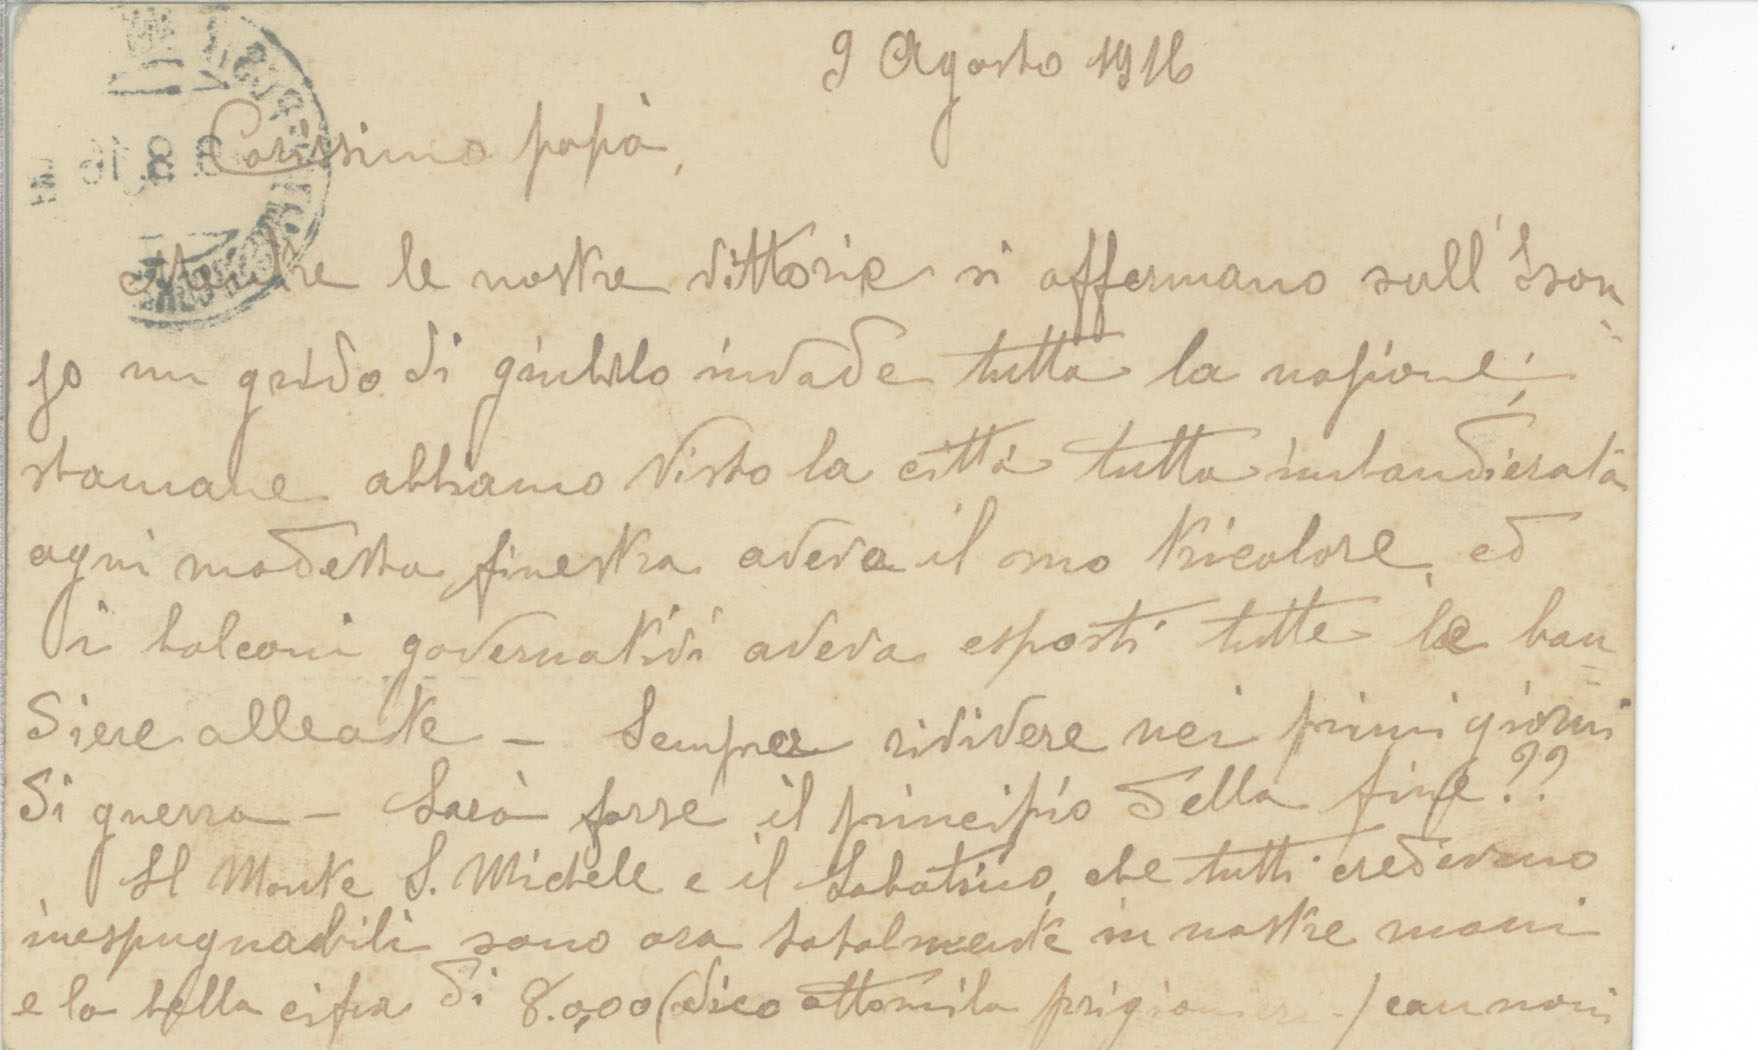 9 Agosto 1916
Carissimo papà,
Mentre le nostre vittorie si affermano sull'Ison-
zo un grido di giubilo invade tutta la nazione;
stamane abbiamo visto la città tutta imbandierata
ogni modesta finestra aveva il suo tricolore, ed
i balconi governativi aveva esposti tutte le ban-
diere alleate - Sempre rividere nei primi giorni
di guerra - Sarà forse il principio della fine??
Il Monte S. Michele e il Sabotino, che tutti credevano
inespugnabili sono ora totalmente in nostre mani
e la bella cifra di 8.000 (dico ottomila prigionieri / cannoni
8.8.16